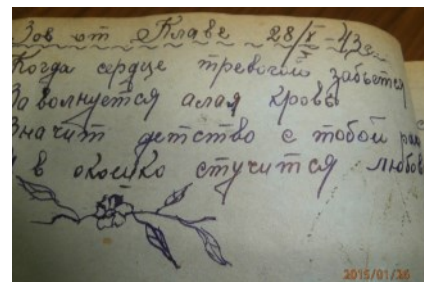 Зов от Клаве 28/V-43г.
Когда сердце тревогой забьется
Заволнуется алая кровь
Значит детство с тобой
И в окошко стучится любов
2015/01/26